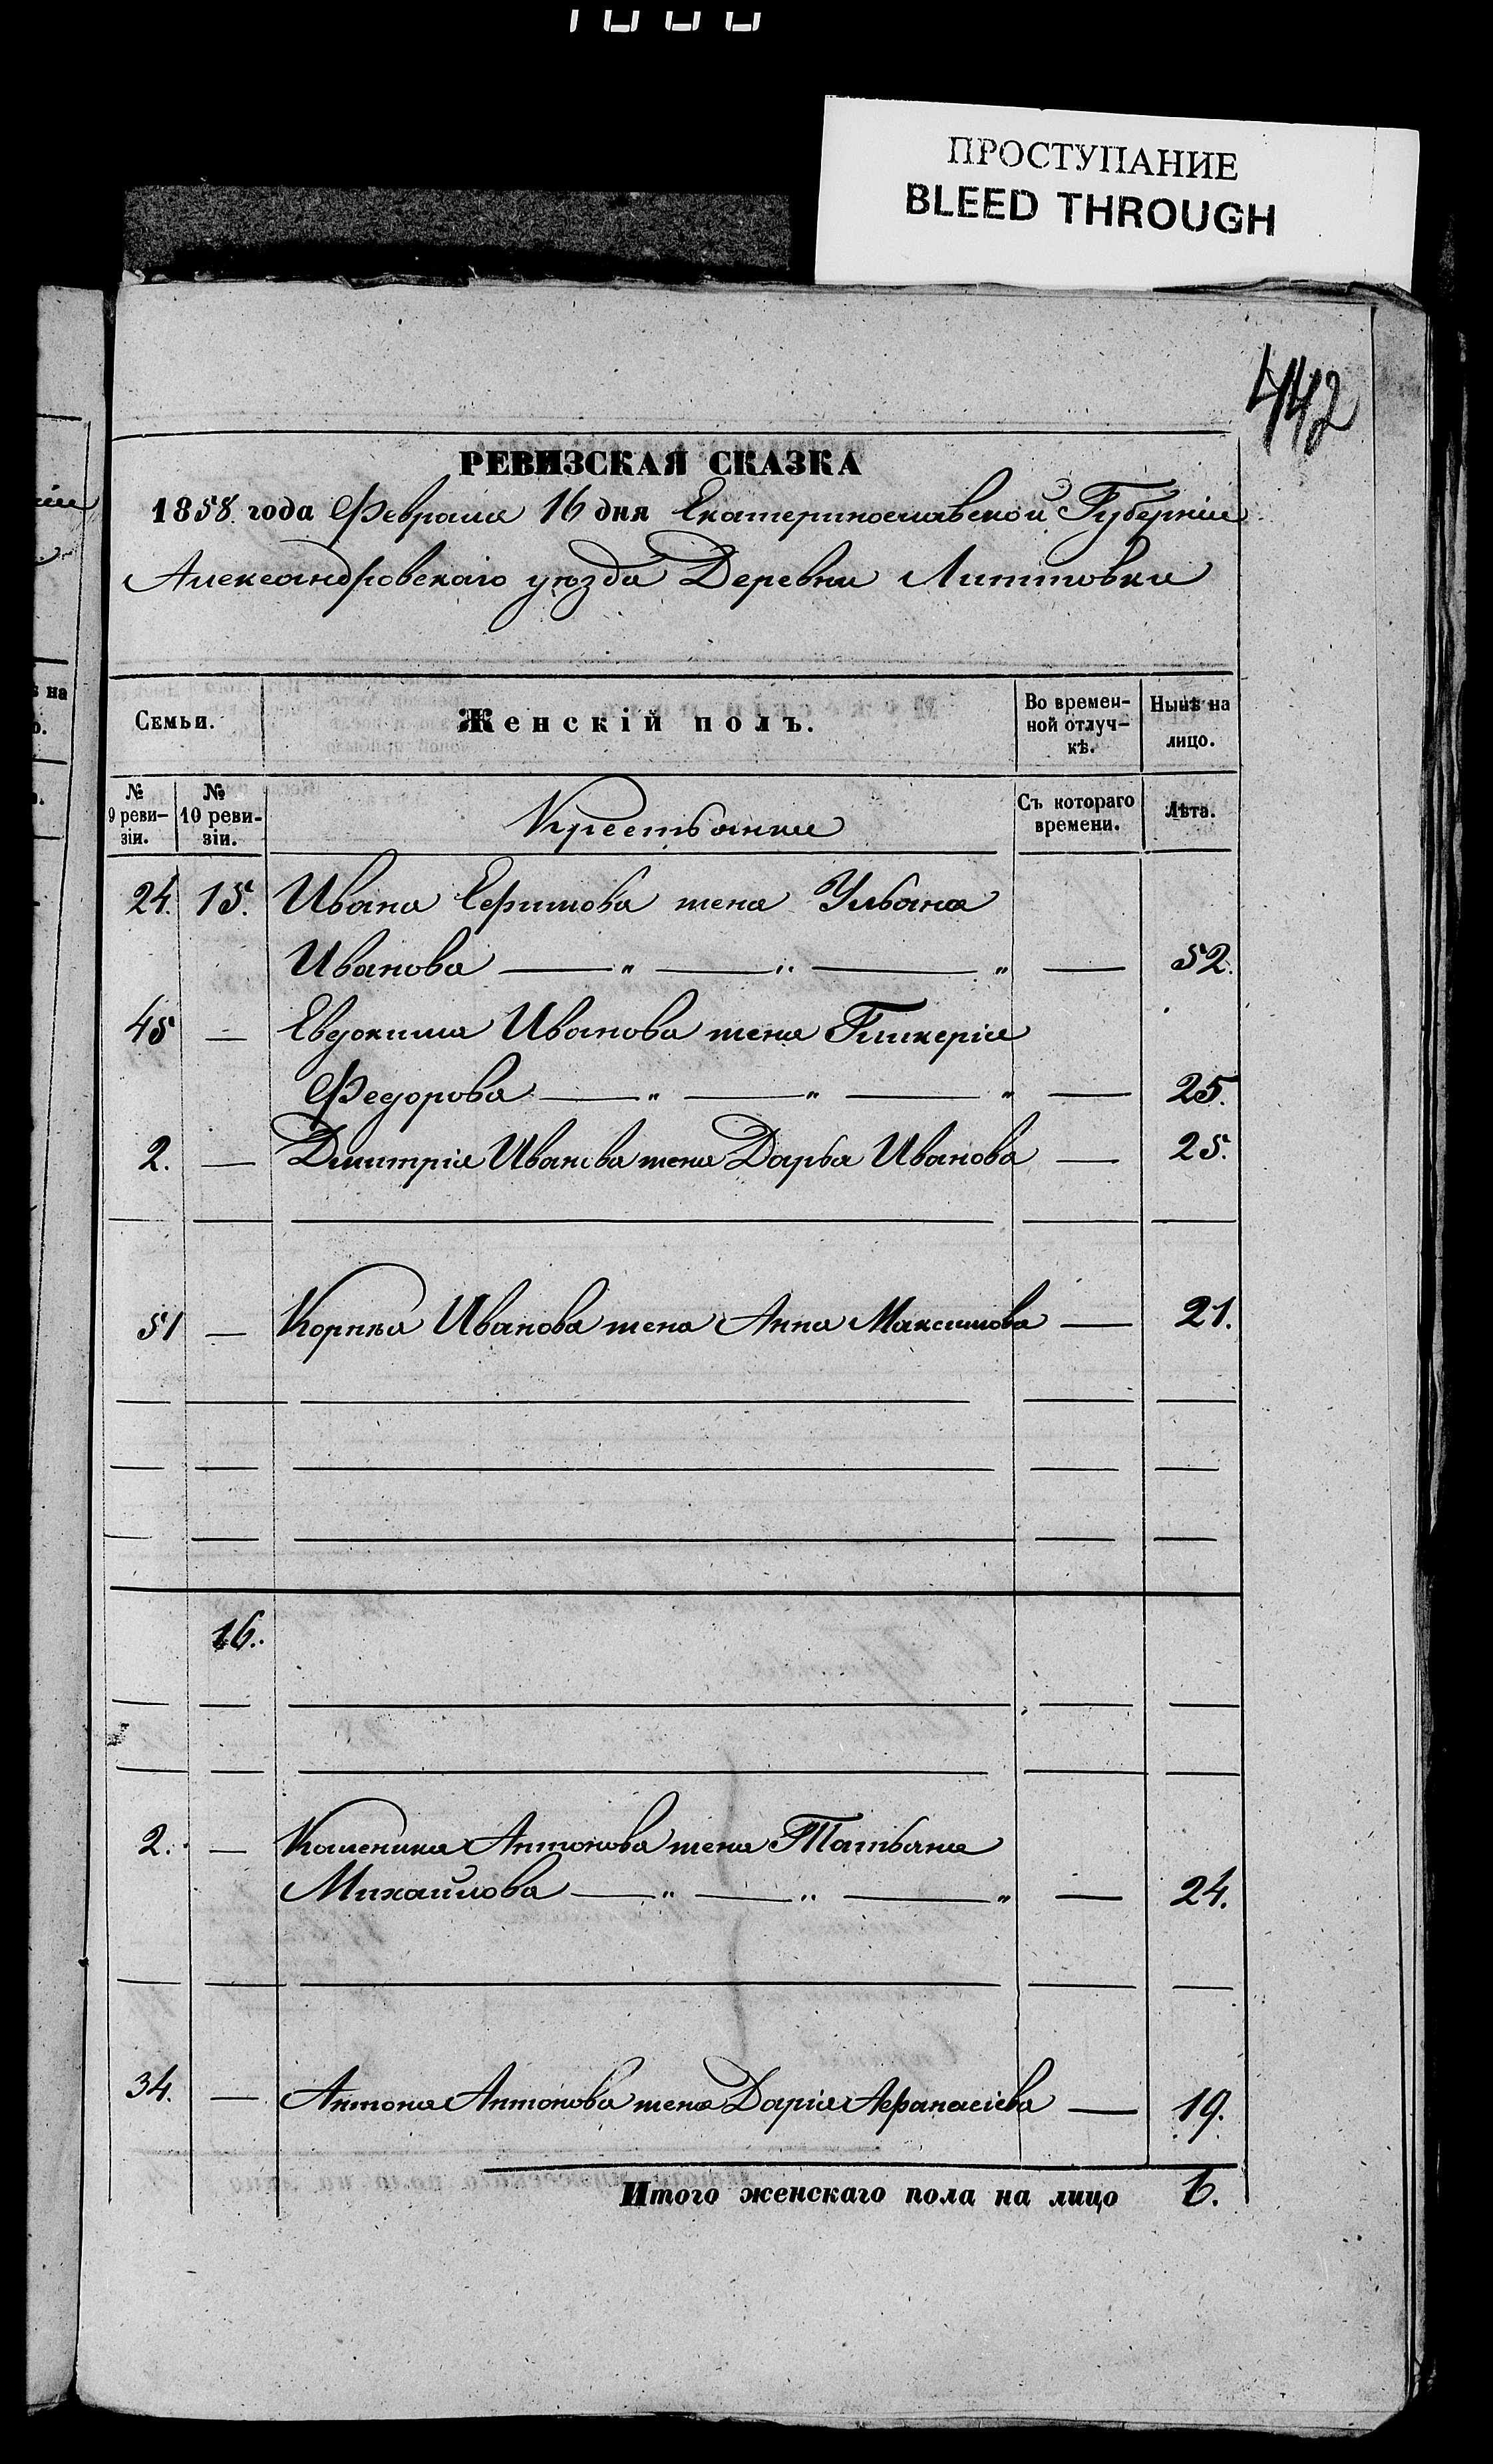 ПРОСТУПАНИЕ
BLEED THROUGH
442
РЕВИЗСКАЯ СКАЗКА
1858. года Февраля 16 дня Екатеринославской Губерніи
Александровскаго уѣзда Деревни
Семьи. Женскій полъ. Во времен-ной отлуч-кѣ. Нынѣ на лицо.
№ 9 реви-зіи. № 10 реви-зіи. Крестьянки Съ котораго времени. Лѣта.
24. 15. Ивана Ефимова жена Ульяна
Иванова — " — " — " — 52.
45 — Евдокима Иванова жена Гликерія
Федорова — " — " — " — 25.
2. — Дмитрія Иванова жена Дарья Иванова — 25.
51 — Корнѣя Иванова жена Анна Максимова — 21.
16.
2. — Калиника Антонова жена Татьяна
Михайлова — " — " — " — 24.
34. — Антона Антонова жена Дарія Афанасіева — 19.
Итого женскаго пола на лицо 6.